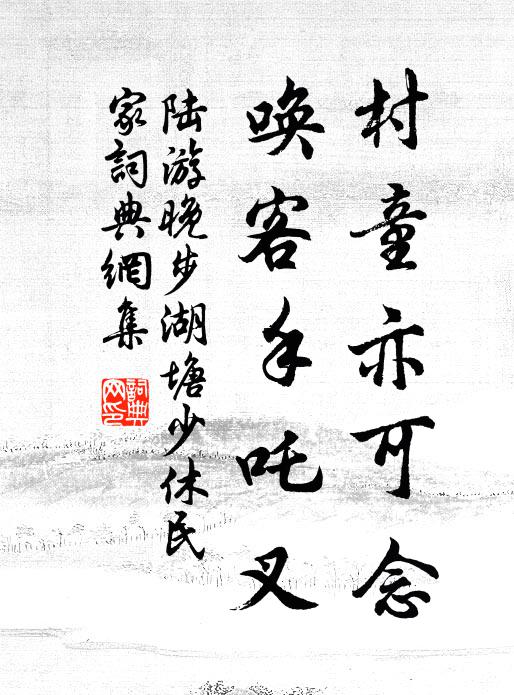 村童亦可念
喚客手吒叉
陸游晚步湖塘少休民
家詞典網集
詞典
网印